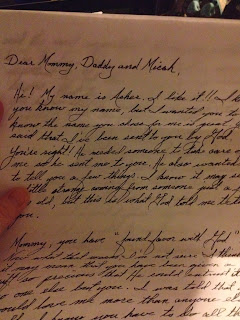 Dear Mommy, Daddy and Micah,
Hi! My name is Asher. I like it!! I
you know my name, but I wanted you to
know the name you chose for me is great.
said that I've been sent to you by God.
You're right! He needed someone to take care of
me so he sent me to you. He also wanted
to tell you a few things. I know it may
little strange coming from someone just a
old, but this is what God told me to
on.
Mommy, you have "found favor with God"
what that means I'm not sure. I think
it may mean that you have been given
so precious that He could
one else but you. I was told that
would love me more than anyone
have to do all th